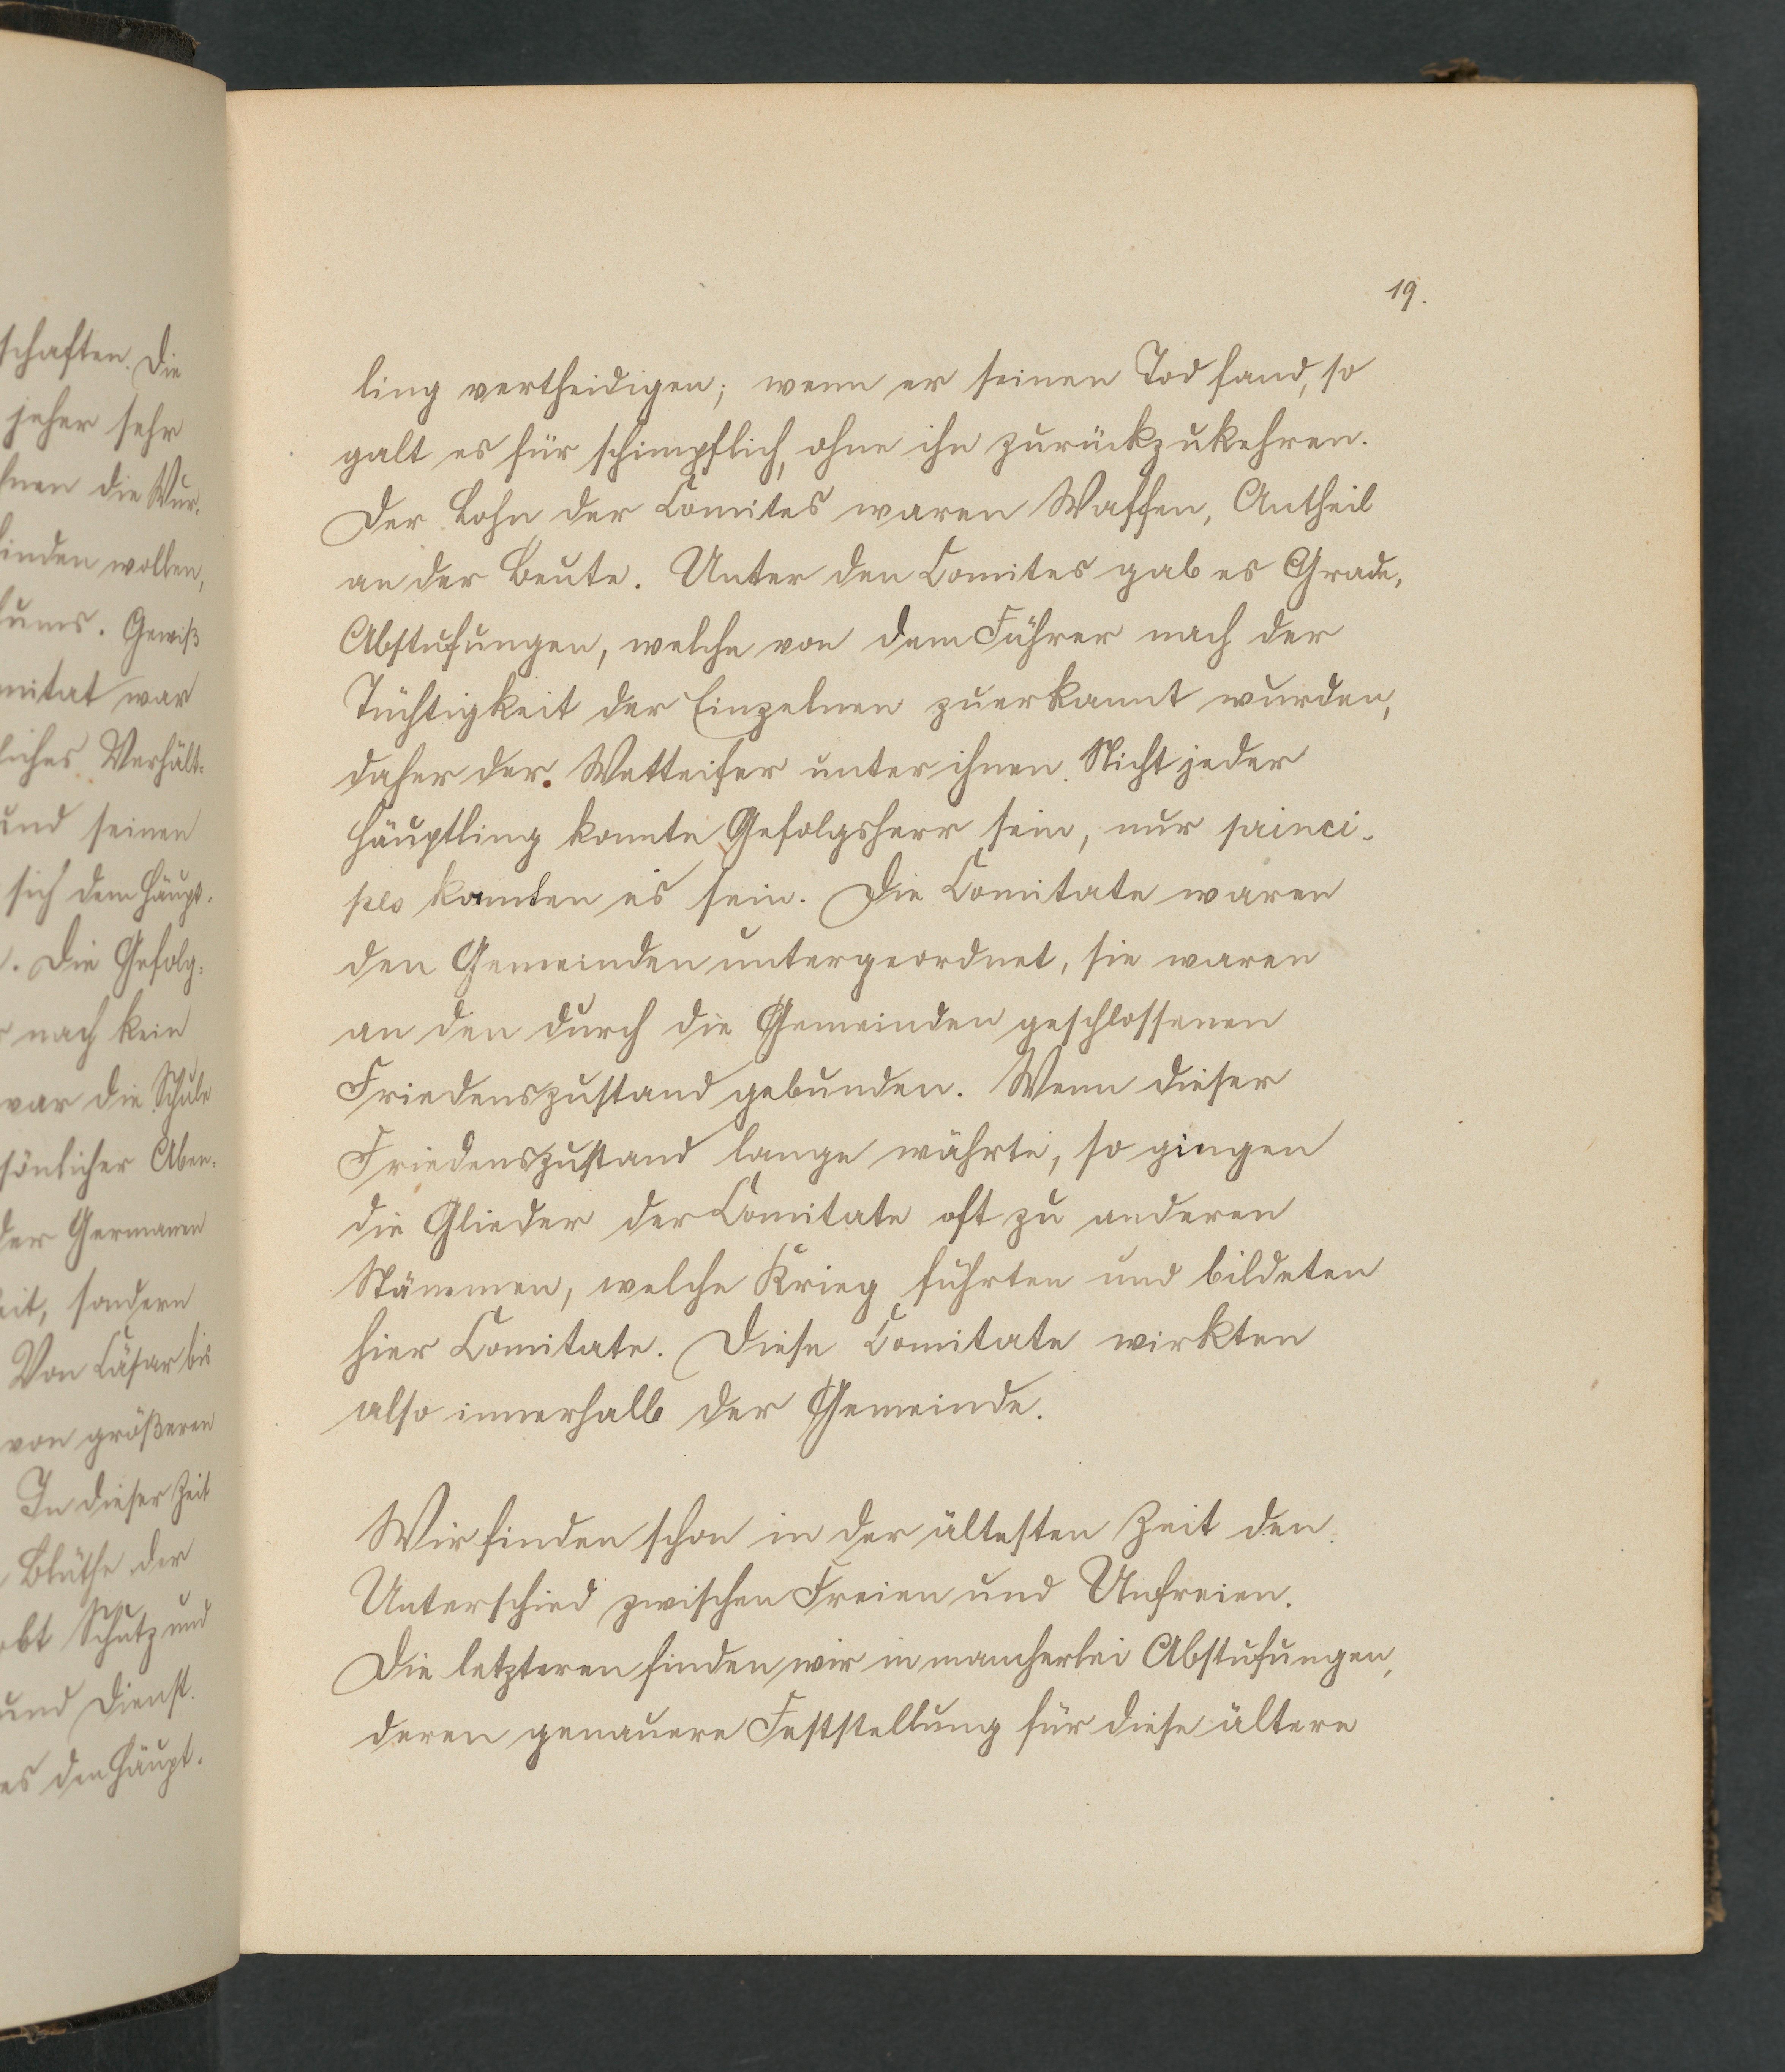 schaften. Die
jeher sehr
hnen die Wur-
finden wollen,
tums. Gewiß
mitat war
liches Verhält-
und seinen
sich dem Häupt-
. Die Gefolg-
nach kein
war die Schule
sönlicher Aben-
der Germanen
eit, sondern
Von Cäsar bis
von größeren
In dieser Zeit
Blüthe der
obt Schutz und
und Dienst.
es den Häupt-
19.
ling vertheidigen; wenn er seinen Tod fand, so
galt es für schimpflich, ohne ihn zurückzukehren.
Der Lohn der Comites waren Waffen, Antheil
an der Beute. Unter den Comites gab es Grade,
Abstufungen, welche von dem Führer nach der
Tüchtigkeit der Einzelnen zuerkannt wurden,
daher der. Wetteifer unter ihnen. Nicht jeder
Häuptling konnte Gefolgsherr sein, nur princi-
pes konnten es sein. Die Comitate waren
den Gemeinden untergeordnet, sie waren
an den durch die Gemeinden geschlossenen
Friedenszustand gebunden. Wenn dieser
Friedenszustand lange währte, so gingen
die Glieder der Comitate oft zu anderen
Stämmen, welche Krieg führten und bildeten
hier Comitate. Diese Comitate wirkten
also innerhalb der Gemeinde.
Wir finden schon in der ältesten Zeit den
Unterschied zwischen Freien und Unfreien.
Die letzteren finden wir in mancherlei Abstufungen,
deren genauere Feststellung für diese ältere